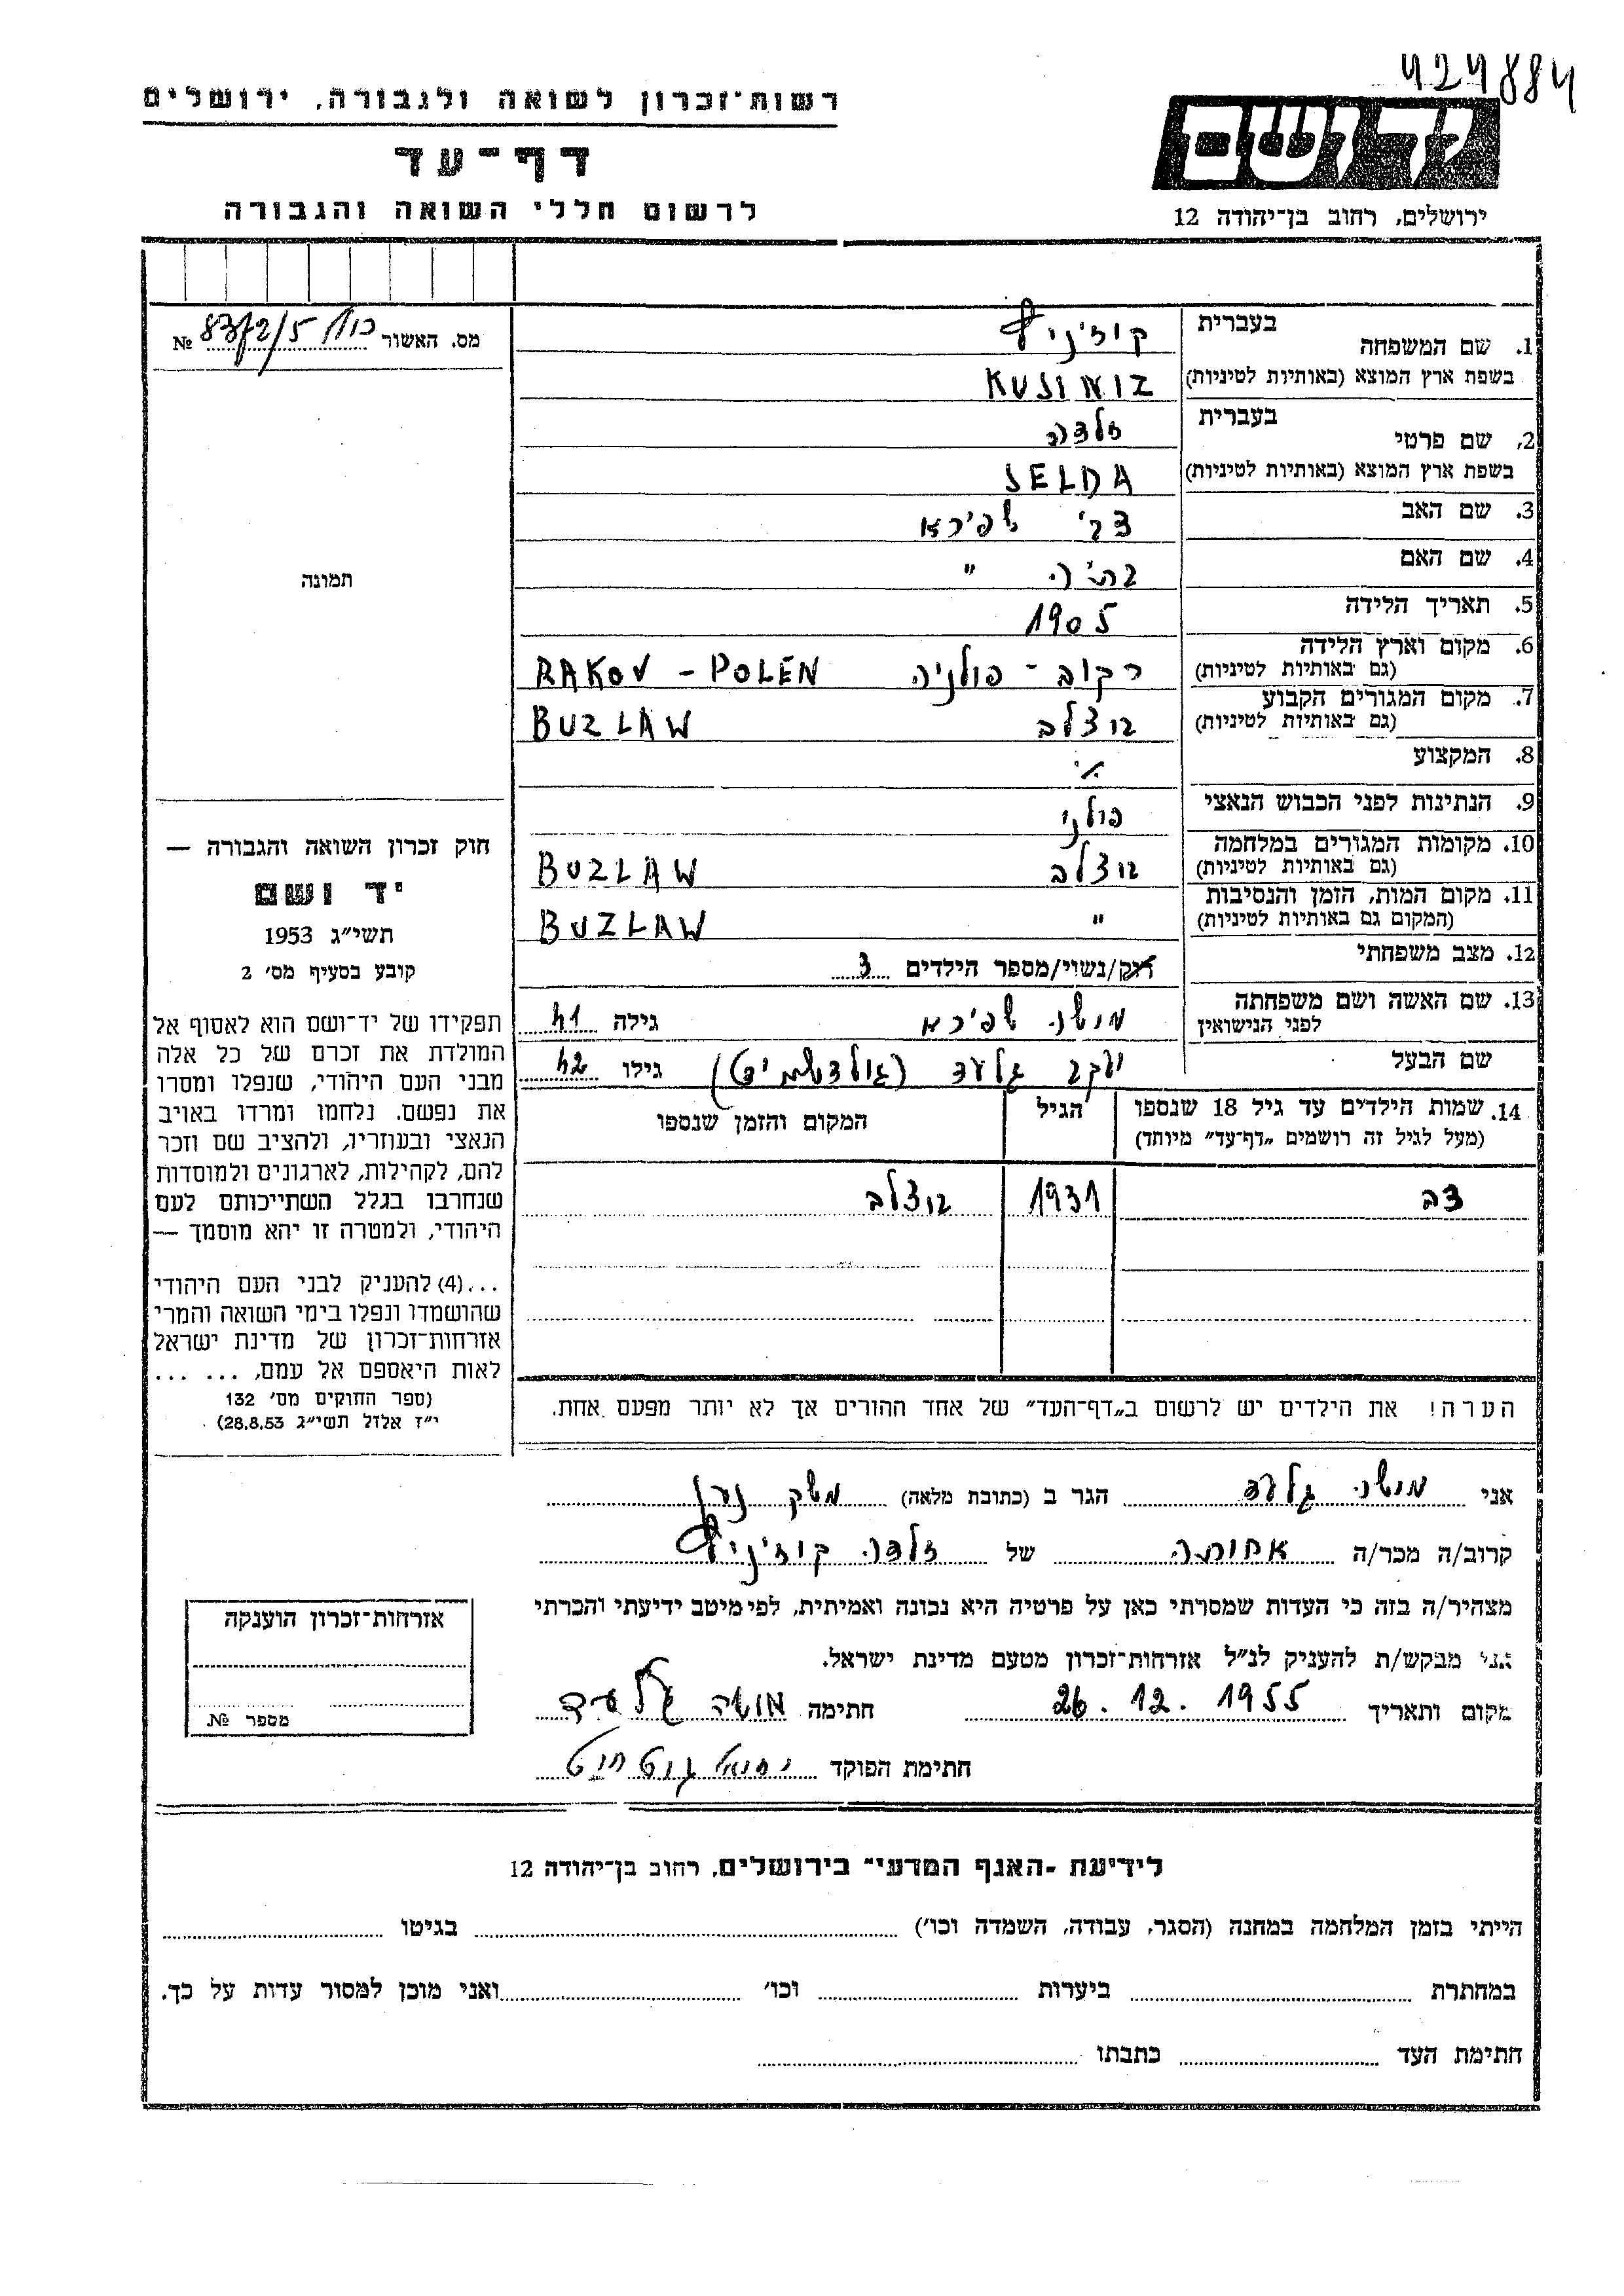 424884
רשות־זכרון לשואה ולגבורה, ירושלים
דף־עד
לרשום חללי השואה והגבורה
יד ושם
ירושלים, רחוב בן־יהודה 12
מס. האשור № 83/2/5
1. שם המשפחה בעברית קוז'ניץ
בשפת ארץ המוצא (באותיות לטיניות) KUSINIZ
2. שם פרטי בעברית זלדה
בשפת ארץ המוצא (באותיות לטיניות) SELDA
3. שם האב צבי שפירא
4. שם האם בתיה "
5. תאריך הלידה 1905
6. מקום וארץ הלידה (גם באותיות לטיניות) רקוב - פולניה RAKOV - POLEN
7. מקום המגורים הקבוע (גם באותיות לטיניות) בוצלב BUZLAW
8. המקצוע
9. הנתינות לפני הכבוש הנאצי פולני
10. מקומות המגורים במלחמה (גם באותיות לטיניות) בוצלב BUZLAW
11. מקום המות, הזמן והנסיבות (המקום גם באותיות לטיניות) " BUZLAW
12. מצב משפחתי רוק/נשוי/מספר הילדים 3
13. שם האשה ושם משפחתה לפני הנישואין מושה שפירא גילה 41
שם הבעל יעקב גלעד (גולדשמידט) גילו 42
14. שמות הילדים עד גיל 18 שנספו (מעל לגיל זה רושמים „דף־עד” מיוחד) הגיל המקום והזמן שנספו
דב 1931 בוצלב
הערה! את הילדים יש לרשום ב„דף־העד” של אחד ההורים אך לא יותר מפעם אחת.
תמונה
חוק זכרון השואה והגבורה —
יד ושם
תשי״ג 1953
קובע בסעיף מס׳ 2
תפקידו של יד־ושם הוא לאסוף אל
המולדת את זכרם של כל אלה
מבני העם היהודי, שנפלו ומסרו
את נפשם. נלחמו ומרדו באויב
הנאצי ובעוזריו, ולהציב שם וזכר
להם, לקהילות, לארגונים ולמוסדות
שנחרבו בגלל השתייכותם לעם
היהודי, ולמטרה זו יהא מוסמך —
...(4) להעניק לבני העם היהודי
שהושמדו ונפלו בימי השואה והמרי
אזרחות־זכרון של מדינת ישראל
לאות היאספם אל עמם, ... ...
(ספר החוקים מס׳ 132
י״ז אלול תשי״ג 28.8.53)
אני מושה גלעד הגר ב (כתובת מלאה) משק נען
קרוב/ה מכר/ה אחותה של זלדה קוז'ניץ
מצהיר/ה בזה כי העדות שמסרתי כאן על פרטיה היא נכונה ואמיתית, לפי מיטב ידיעתי והכרתי
אני מבקש/ת להעניק לנ״ל אזרחות־זכרון מטעם מדינת ישראל.
מקום ותאריך 26. 12. 1955 חתימה מושה גלעד
חתימת הפוקד
אזרחות־זכרון הוענקה
מספר №
לידיעת „האגף המדעי” בירושלים, רחוב בן־יהודה 12
הייתי בזמן המלחמה במחנה (הסגר, עבודה, השמדה וכו׳) בגיטו
במחתרת ביערות וכו׳ ואני מוכן למסור עדות על כך.
חתימת העד כתבתו